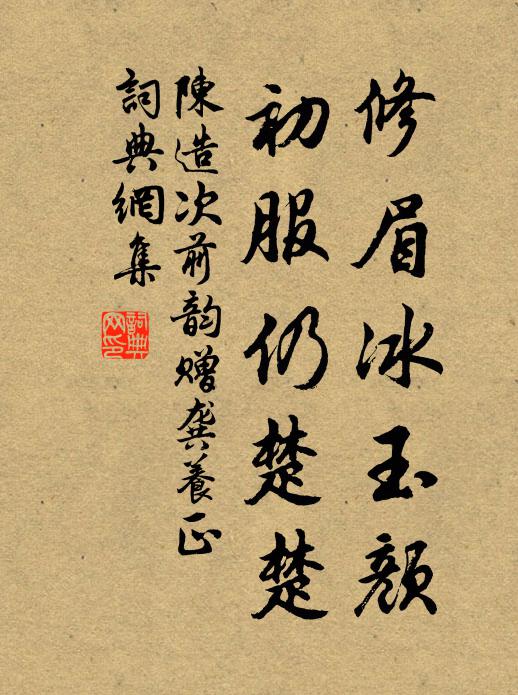 修眉冰玉顔
初服仍楚楚
陳造次前韵贈龔養正
詞典網集
詞典
网印